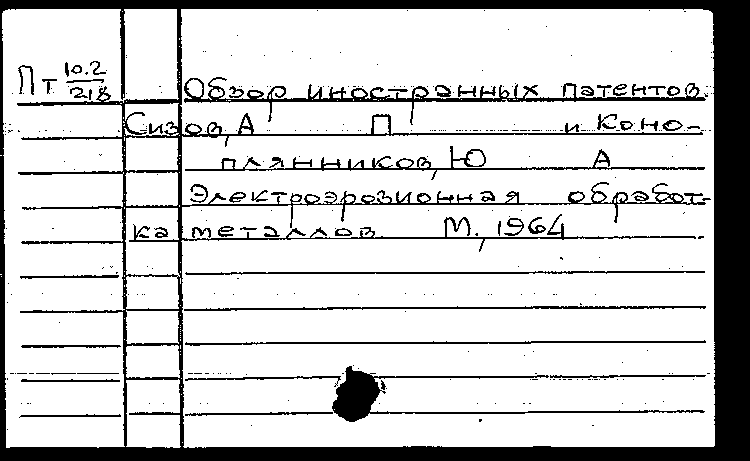 Пт 10.2/218 Обзор иностранных патентов.
Сизов, А П и Коно-
плянников, Ю А
Электроэрозионная обработ-
ка металлов. М., 1964